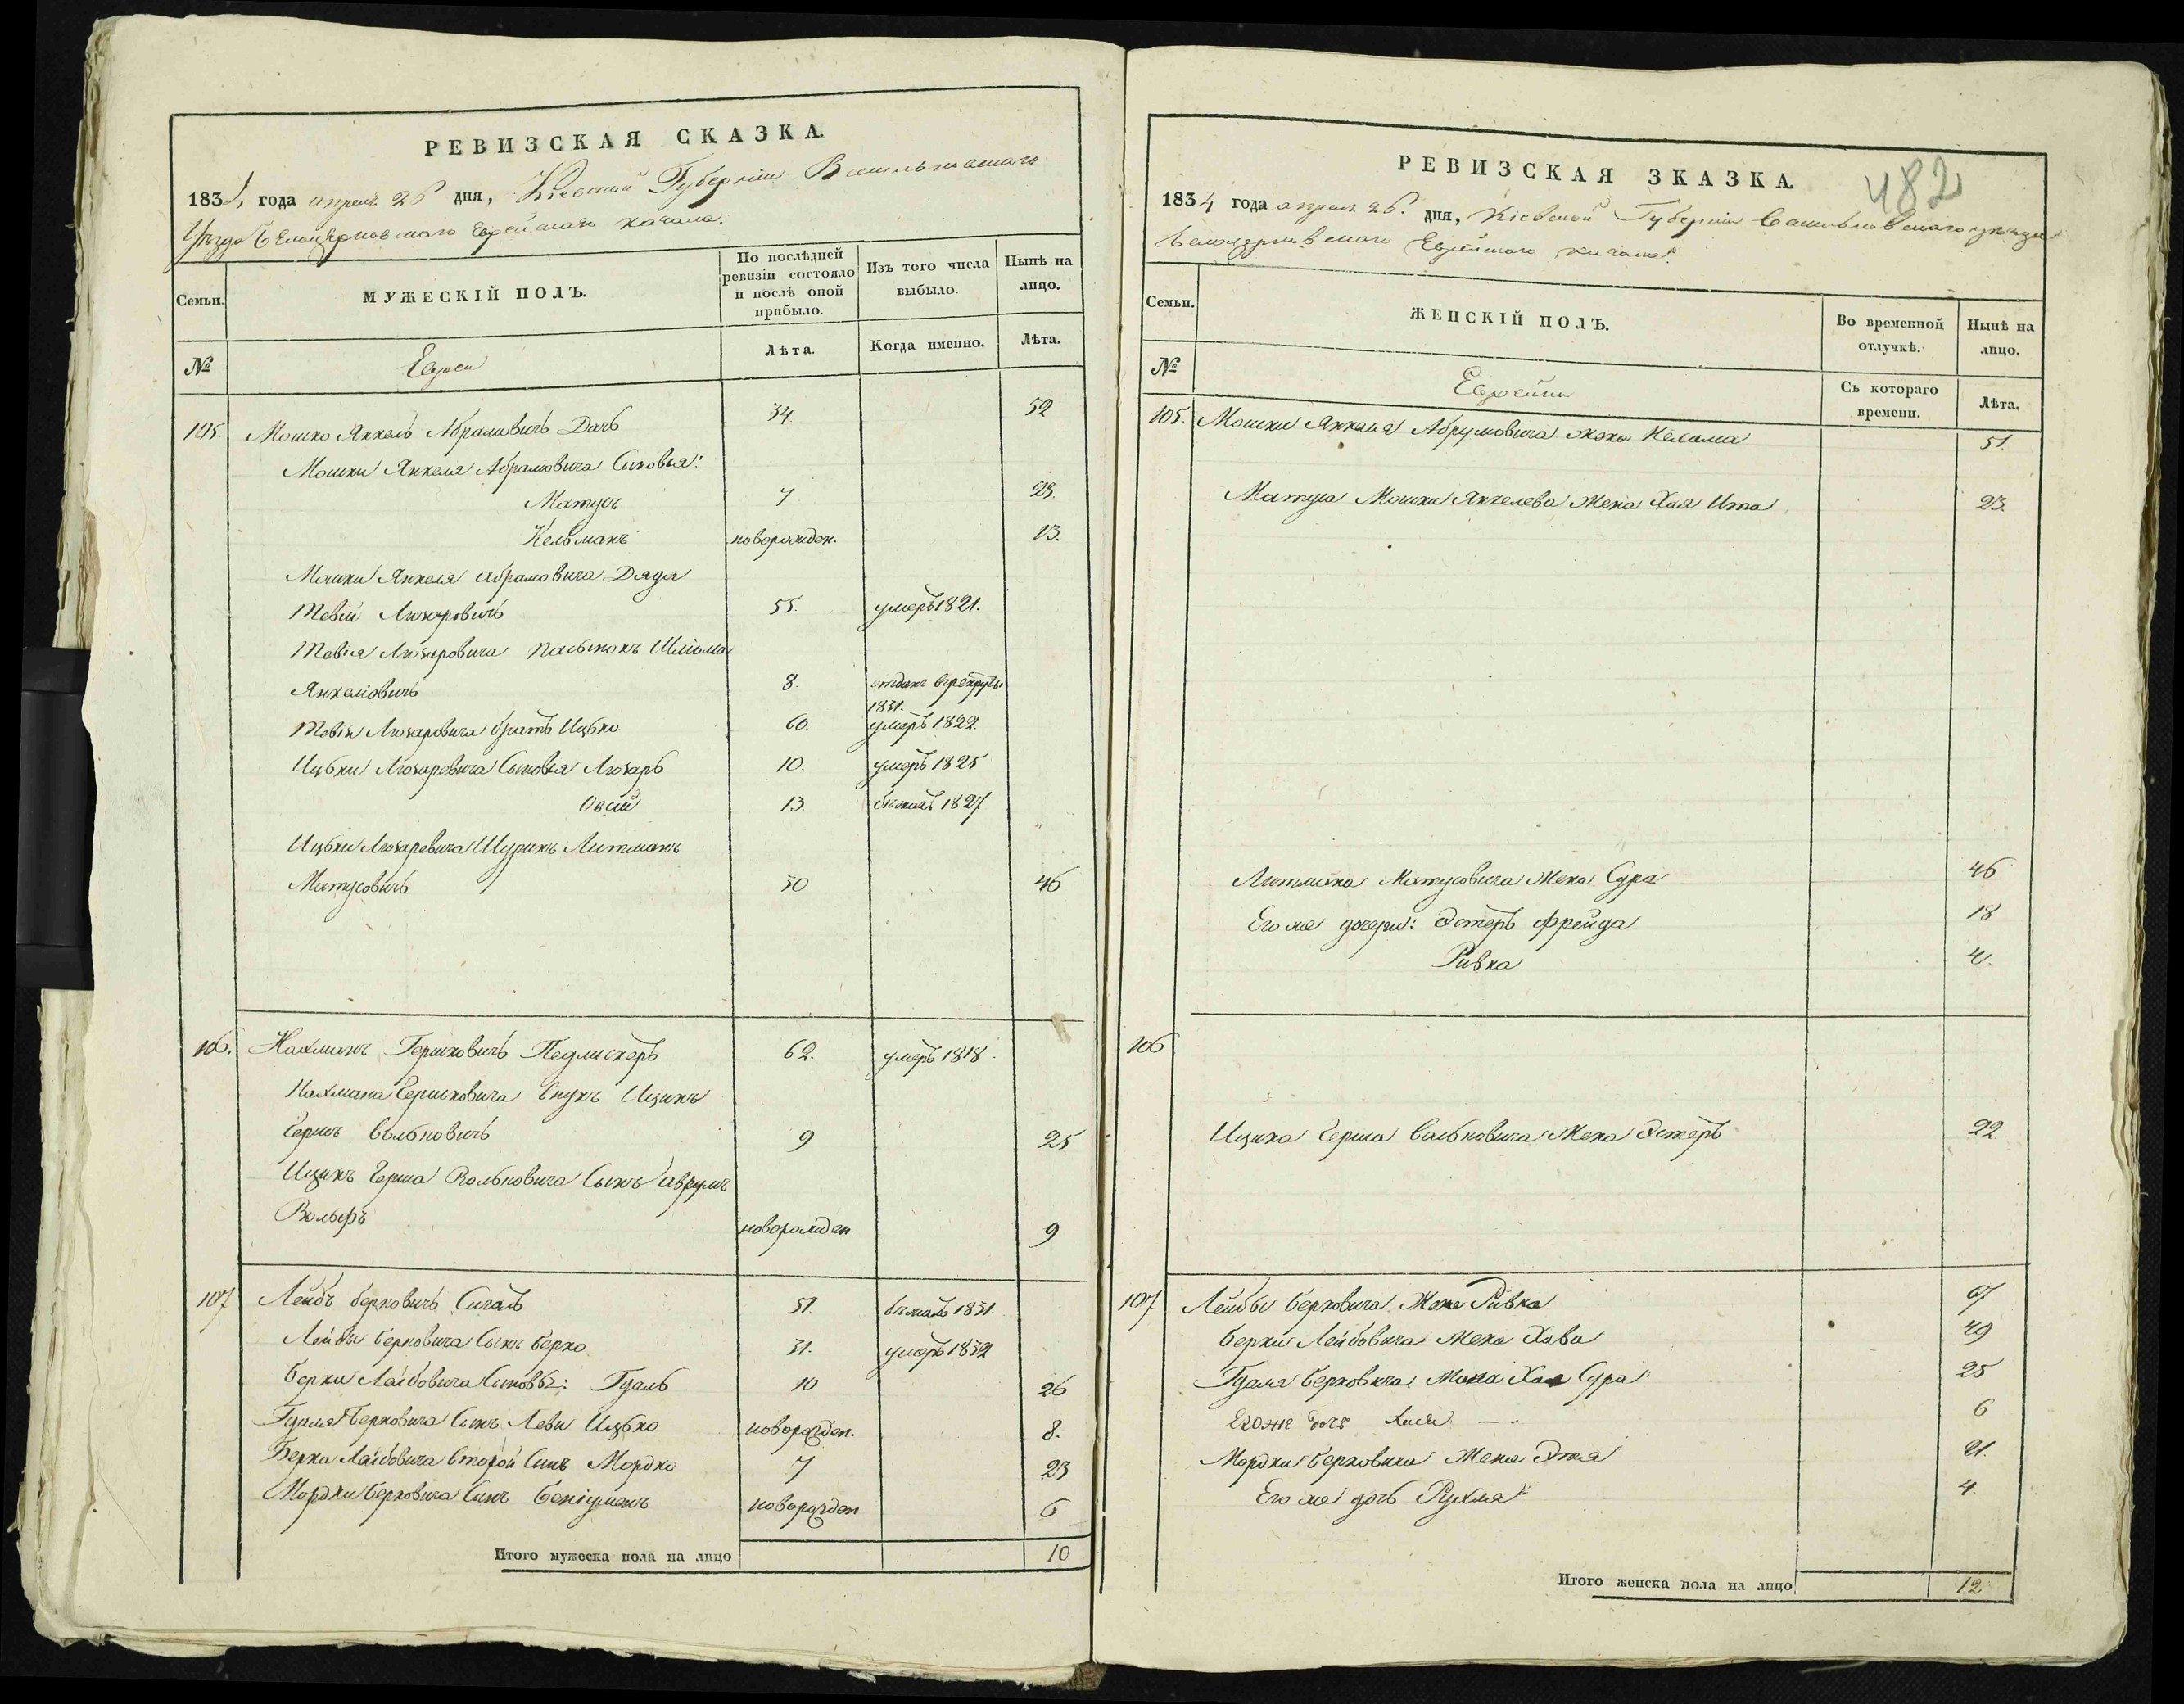 РЕВИЗСКАЯ СКАЗКА.
1834 года апреля 26 дня, Кіевской Губерніи Васильковскаго
Уезда Белоцерковскаго Еврейскаго кагала:
Семьи.
МУЖЕСКІЙ ПОЛЪ.
По послѣдней ревизіи состояло и послѣ оной прибыло.
Изъ того числа выбыло.
Нынѣ на лицо.
№
Евреи
Лѣта.
Когда именно.
Лѣта.
105 Мошко Янкель Абрамовичъ Дачъ 34 52
Мошки Янкеля Абрамовича Сыновья:
Матусъ 7 23.
Кельманъ новорожден. 13.
Мошки Янкеля Абрамовича Дядя
Тевій Люзаровичъ 55. умеръ 1821.
Тевія Люзаровича пасынокъ Шліома
Янкеліовичъ 8. отданъ врекруты 1831.
Тевія Люзаровича братъ Ицько 60. умеръ 1822.
Ицьки Люзаревича Сыновья Люзаръ 10. умеръ 1825
Овсій 13. бежалъ 1827
Ицьки Люзаревича Шуринъ Литманъ
Матусовичъ 30 46
106. Нахманъ Гершковичъ 62. умеръ 1818.
Нахмана Гершковича внукъ Ицикъ
Гершъ Вольковичъ 9 25
Ицикъ Герша Вольковича Сынъ Аврумъ
Вольфъ новорожден 9
107 Лейбъ Берковичъ Сигалъ 51. бежалъ 1831.
Лейбы Берковича Сынъ Берко 31. умеръ 1832
Берки Лейбовича Сыновья: Гдаль 10 26
Гдаля Берковича Сынъ Леви Ицько новорожден. 8.
Берка Лейбовича второй Сынъ Мордко 7 23
Мордки Берковича Сынъ Беніуменъ новорожден 6
Итого мужеска пола на лицо 10
482
РЕВИЗСКАЯ ЗКАЗКА.
1834 года апреля 26. дня, Кіевской Губерніи Васильковскаго уезда
Белоцерковскаго Еврейскаго кагала:
Семьи.
ЖЕНСКІЙ ПОЛЪ.
Во временной отлучкѣ.
Нынѣ на лицо.
№
Еврейки
Съ котораго времени.
Лѣта.
105. Мошки Янкеля Абрумовича жена Нехама 51.
Матуса Мошки Янкелева Жена Хая Ита 23.
Литмана Матусовича Жена Сура 46
Его же дочери: Эстеръ Фрейда 18
Ривка 4.
106
Ицика Герша Вольковича Жена Эстеръ 22
107 Лейбы Берковича Жена Ривка 67
Берки Лейбовича Жена Хава 49
Гдаля Берковича Жена Хая Сура 25
Егоже дочь Хася 6
Мордки Берковича Жена Этя 21.
Его же дочь Рухля 4
Итого женска пола на лицо 12